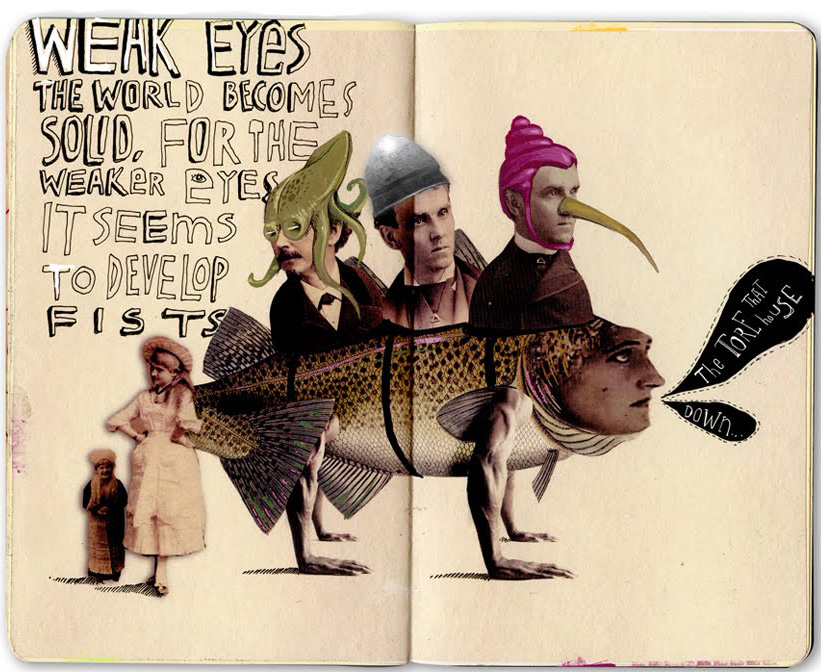 WEAK EYES
THE WORLD BECOMES
SOLID. FOR THE
WEAKER EYES
IT SEEMS
TO DEVELOP
FISTS
The TORE THAT HOUSE
DOWN...